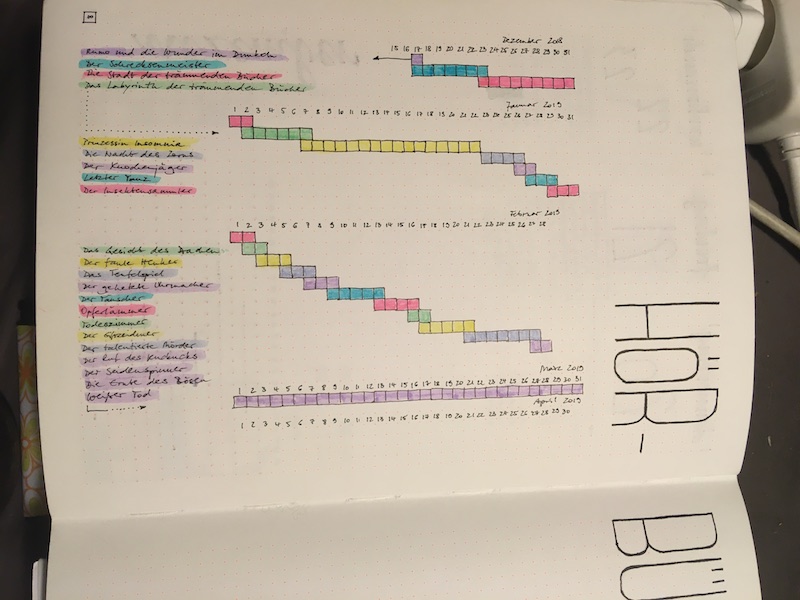 Dezember 2018
15 16 17 18 19 20 21 22 23 24 25 26 27 28 29 30 31
Rumo und die Wunder im Dunkeln
Der Schrecksenmeister
Die Stadt der träumenden Bücher
Das Labyrinth der träumenden Bücher
Januar 2019
1 2 3 4 5 6 7 8 9 10 11 12 13 14 15 16 17 18 19 20 21 22 23 24 25 26 27 28 29 30 31
Prinzessin Insomnia
Die Nacht des Zorns
Der Knochenjäger
Letzter Tanz
Der Insektensammler
Februar 2019
1 2 3 4 5 6 7 8 9 10 11 12 13 14 15 16 17 18 19 20 21 22 23 24 25 26 27 28
Das Gesicht des Drachen
Der faule Henker
Das Teufelsspiel
Der gehetzte Uhrmacher
Der Täuscher
Opferlammer
Todeszimmer
Der Giftzeichner
Der talentierte Mörder
Der Ruf des Kuckucks
Der Seidenspinner
Die Ernte des Bösen
Weißer Tod
März 2019
1 2 3 4 5 6 7 8 9 10 11 12 13 14 15 16 17 18 19 20 21 22 23 24 25 26 27 28 29 30 31
April 2019
1 2 3 4 5 6 7 8 9 10 11 12 13 14 15 16 17 18 19 20 21 22 23 24 25 26 27 28 29 30
HÖR-
BÜ